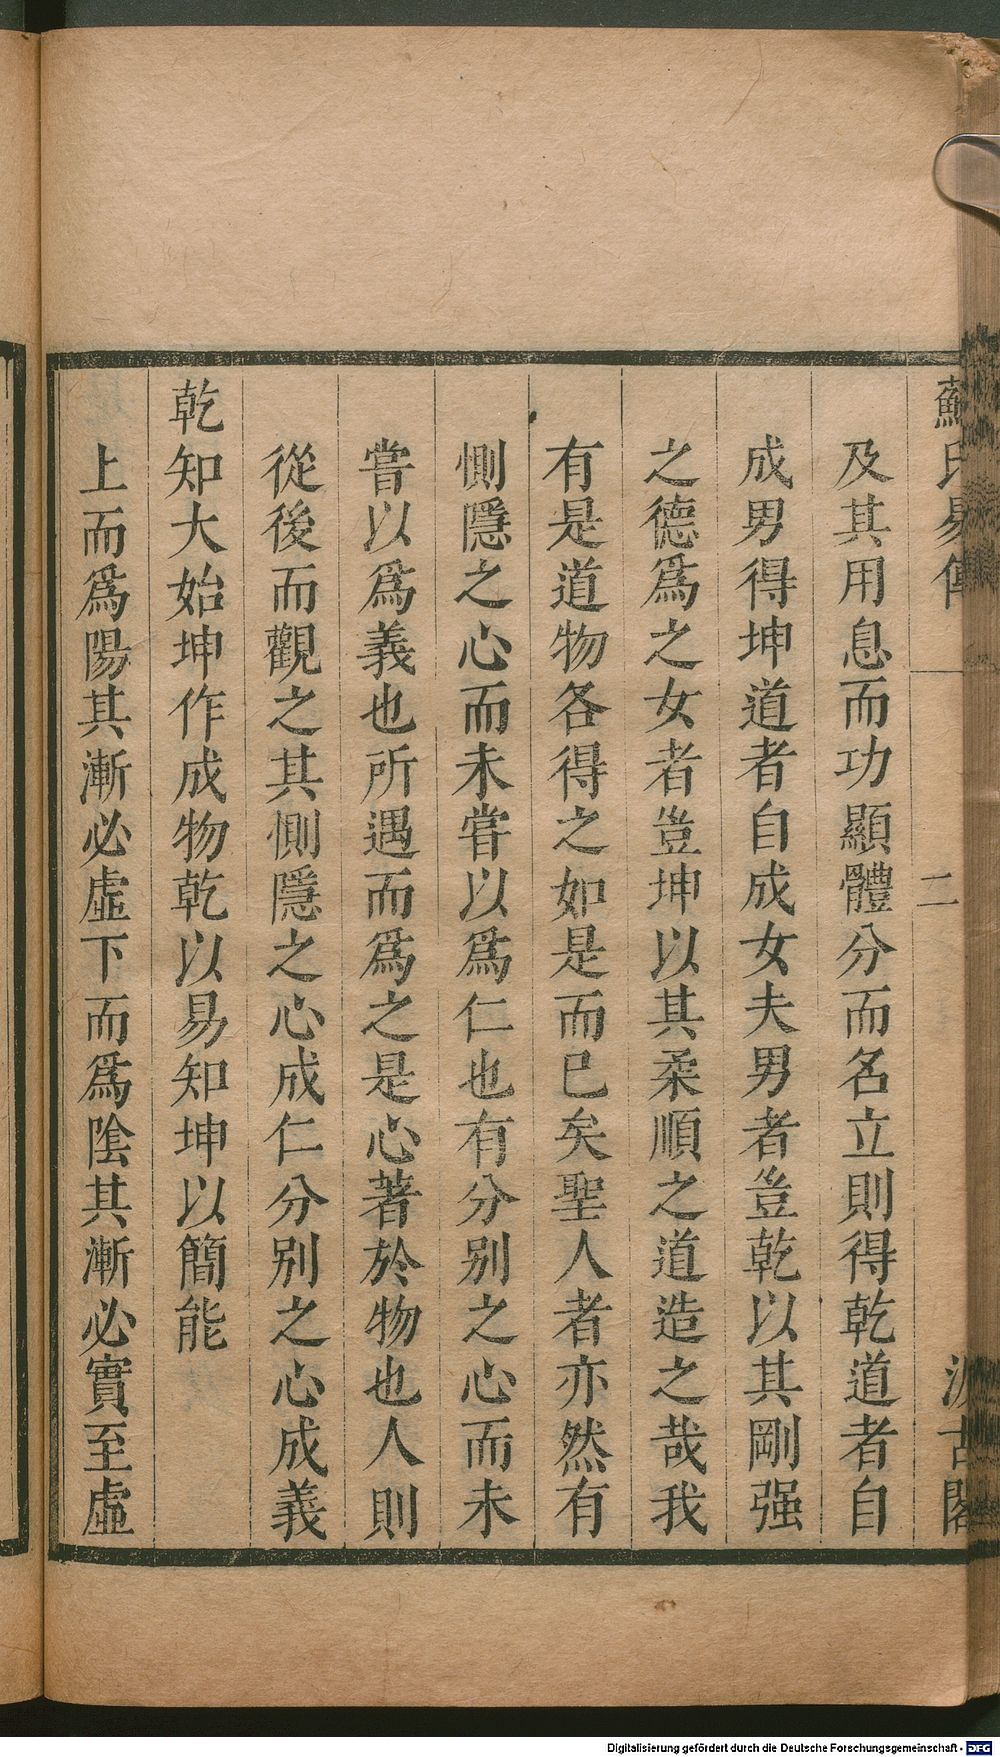 蘇氏易傳 二 汲古閣
及其用息而功顯體分而名立則得乾道者自
成男得坤道者自成女夫男者豈乾以其剛强
之德爲之女者豈坤以其柔順之道造之哉我
有是道物各得之如是而已矣聖人者亦然有
惻隱之心而未嘗以爲仁也有分别之心而未
嘗以爲義也所遇而爲之是心著於物也人則
從後而觀之其惻隱之心成仁分别之心成義
乾知大始坤作成物乾以易知坤以簡能
上而爲陽其漸必虛下而爲陰其漸必實至虛
Digitalisierung gefördert durch die Deutsche Forschungsgemeinschaft - DFG